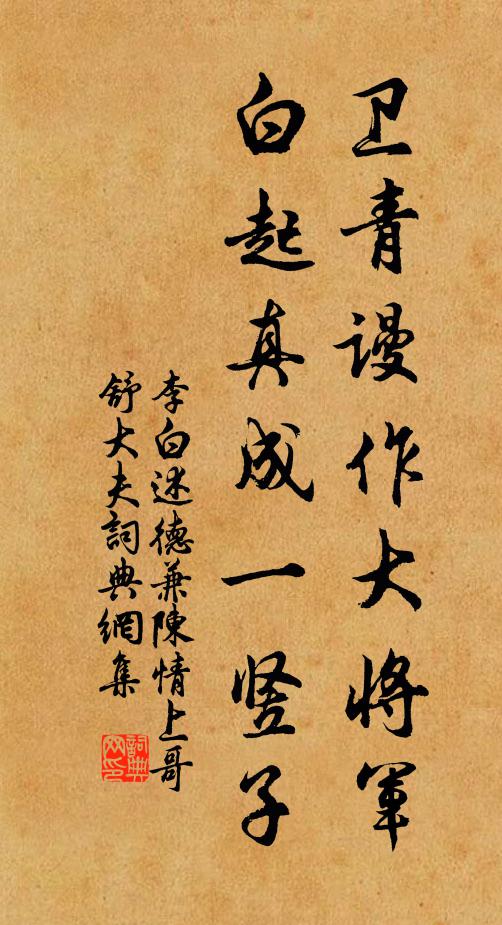 卫青谩作大将軍
白起真成一竖子
李白述德兼陳情上哥
舒大夫詞典網集
詞典
网印